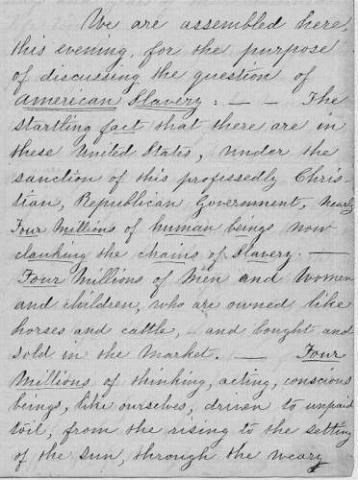 We are assembled here,
this evening, for the purpose
of discussing the question of
American Slavery: — — The
startling fact that there are in
these United States, under the
sanction of this professedly Chris-
tian, Republican Government, nearly
Four Millions of human beings now
clanking the chains of Slavery. —
Four Millions of Men and Women
and children, who are owned like
horses and cattle, – and bought and
sold in the market. — Four
Millions of thinking, acting, conscious
beings, like ourselves, driven to unpaid
toil, from the rising to the setting
of the sun, through the weary